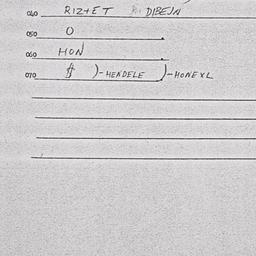 040 RIZ+ET DIBEJN
050 O
060 HON
070 $ )-HENDELE )-HONEXL